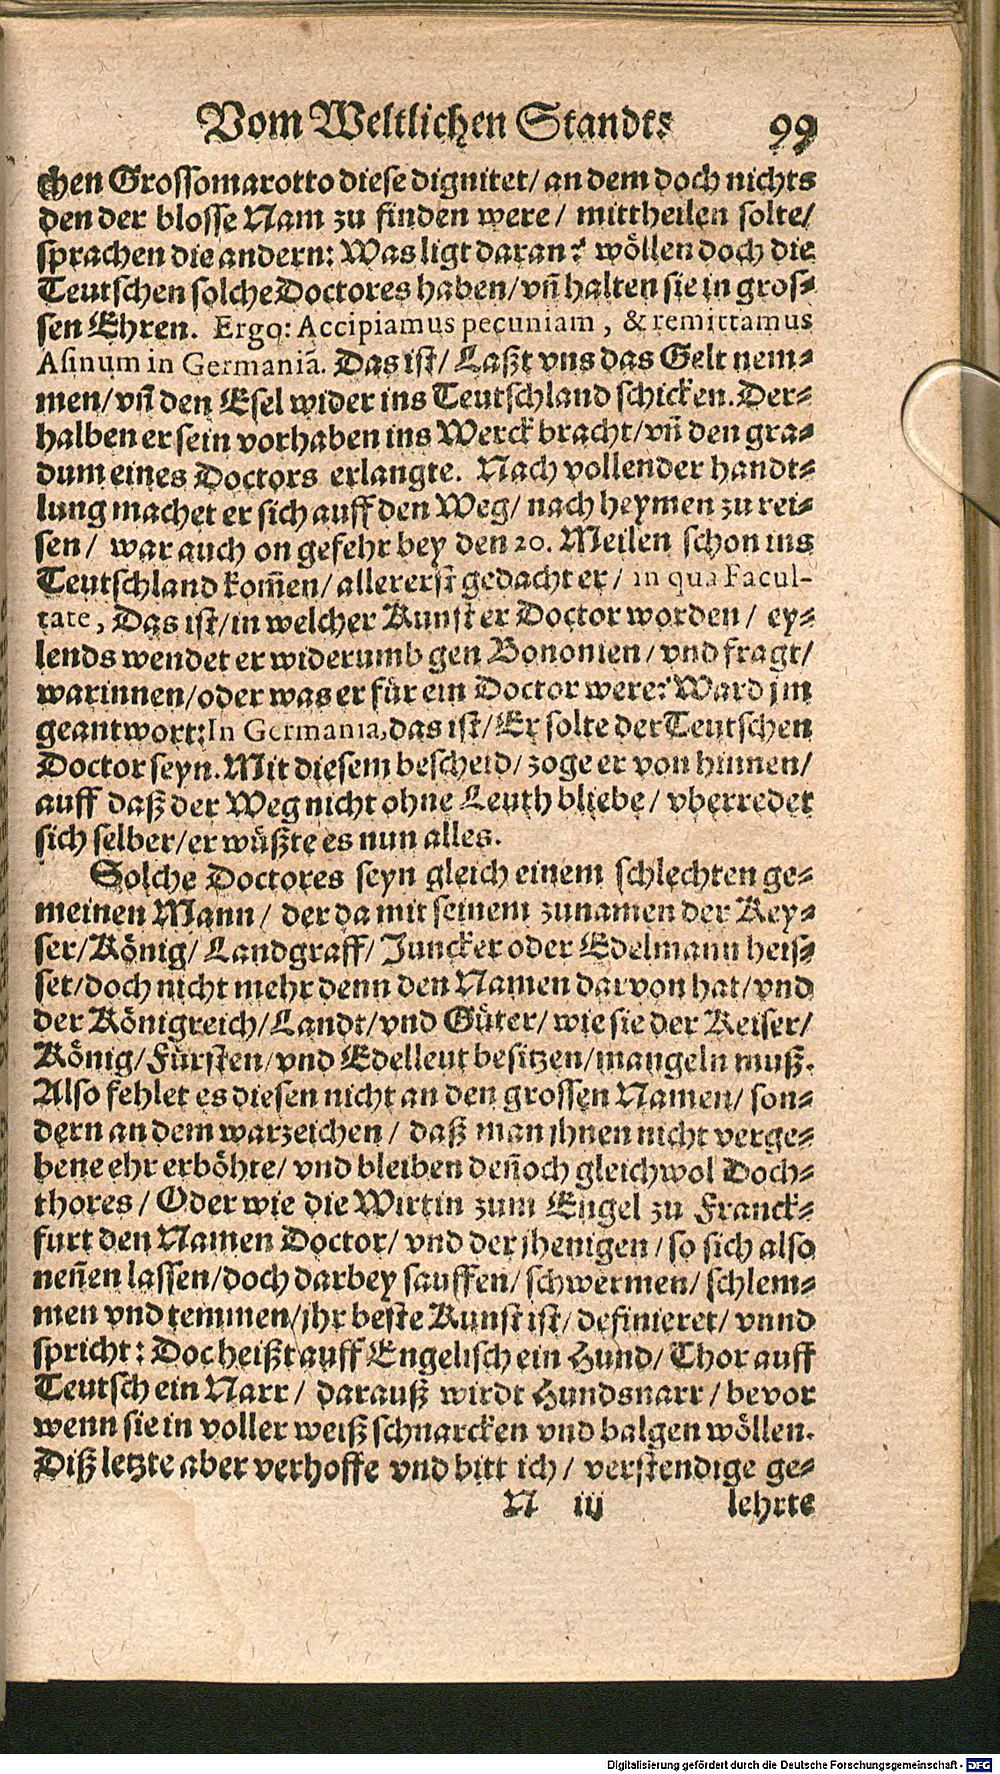 Vom Weltlichen Standts 99
chen Grossomarotto diese dignitet/ an dem doch nichts
den der blosse Nam zu finden were/ mittheilen solte/
sprachen die andern: Was ligt daran? wöllen doch die
Teutschen solche Doctores haben/ vñ halten sie in gros⸗
sen Ehren. Ergo: Accipiamus pecuniam, & remittamus
Asinum in Germaniã. Das ist/ Laßt vns das Gelt nem⸗
men/ vñ den Esel wider ins Teutschland schicken. Der⸗
halben er sein vorhaben ins Werck bracht/ vñ den gra⸗
dum eines Doctors erlangte. Nach vollender handt⸗
lung machet er sich auff den Weg/ nach heymen zu rei⸗
sen/ war auch on gefehr bey den 20. Meilen schon ins
Teutschland kom̃en/ allererst gedacht er/ in qua Facul-
tate, Das ist/ in welcher Kunst er Doctor worden/ ey⸗
lends wendet er widerumb gen Bononien/ vnd fragt/
warinnen/ oder was er für ein Doctor were? Ward jm
geantwort: In Germania, das ist/ Er solte der Teutschen
Doctor seyn. Mit diesem bescheid/ zoge er von hinnen/
auff daß der Weg nicht ohne Leuth bliebe/ vberredet
sich selber/ er wüßte es nun alles.
Solche Doctores seyn gleich einem schlechten ge⸗
meinen Mann/ der da mit seinem zunamen der Key⸗
ser/ König/ Landgraff/ Juncker oder Edelmann heis⸗
set/ doch nicht mehr denn den Namen darvon hat/ vnd
der Königreich/ Landt/ vnd Güter/ wie sie der Keiser/
König/ Fürsten/ vnd Edelleut besitzen/ mangeln muß.
Also fehlet es diesen nicht an den grossen Namen/ son⸗
dern an dem warzeichen/ daß man ihnen nicht verge⸗
bene ehr erböhte/ vnd bleiben deñoch gleichwol Doch⸗
thores/ Oder wie die Wirtin zum Engel zu Franck⸗
furt den Namen Doctor/ vnd der jhenigen/ so sich also
neñen lassen/ doch darbey sauffen/ schwermen/ schlem⸗
men vnd temmen/ jhr beste Kunst ist/ definieret/ vnnd
spricht: Doc heißt auff Engelisch ein Hund/ Thor auff
Teutsch ein Narr/ darauß wirdt Hundsnarr/ bevor
wenn sie in voller weiß schnarcken vnd balgen wöllen.
Diß letzte aber verhoffe vnd bitt ich/ verstendige ge⸗
N iij lehrte
Digitalisierung gefördert durch die Deutsche Forschungsgemeinschaft - DFG